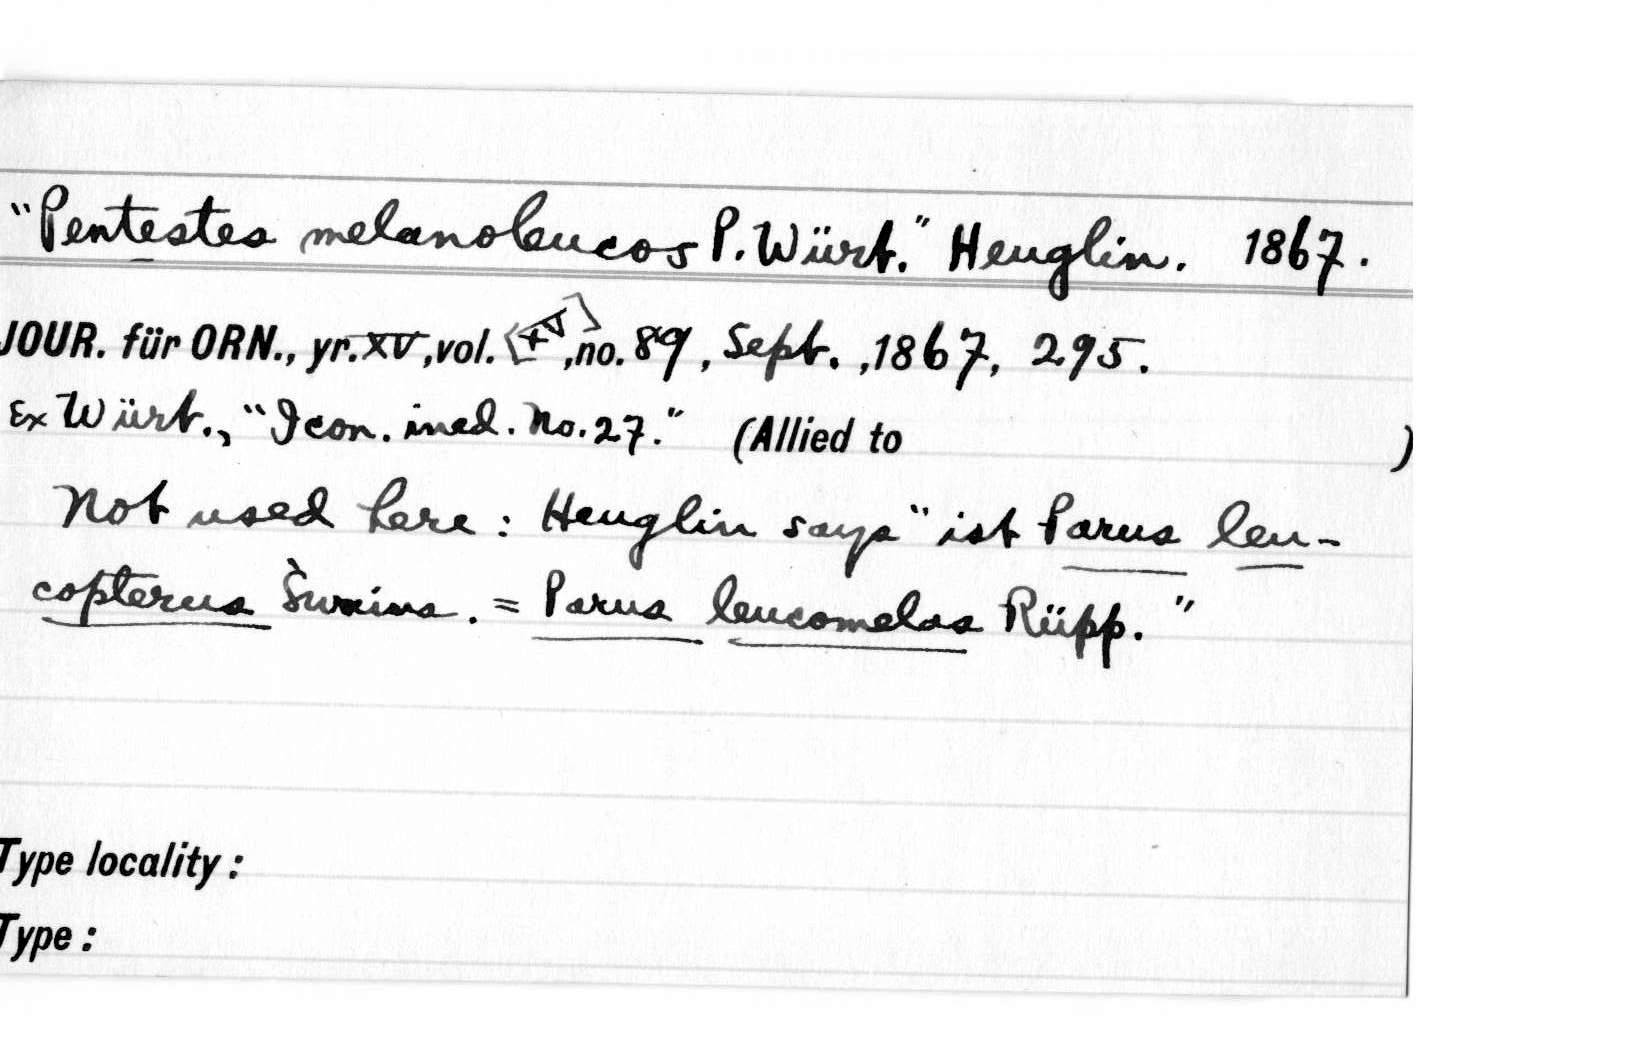 "Pentestes melanoleucos P. Würt." Heuglin. 1867.
JOUR. für ORN., yr. XV, vol. <XV>, no. 89, Sept., 1867, 295.
Ex Würt., "Icon. ined. No. 27." (Allied to )
Not used here: Heuglin says "ist Parus leu-
copterus Swains. = Parus leucomelas Rüpp."
Type locality:
Type: